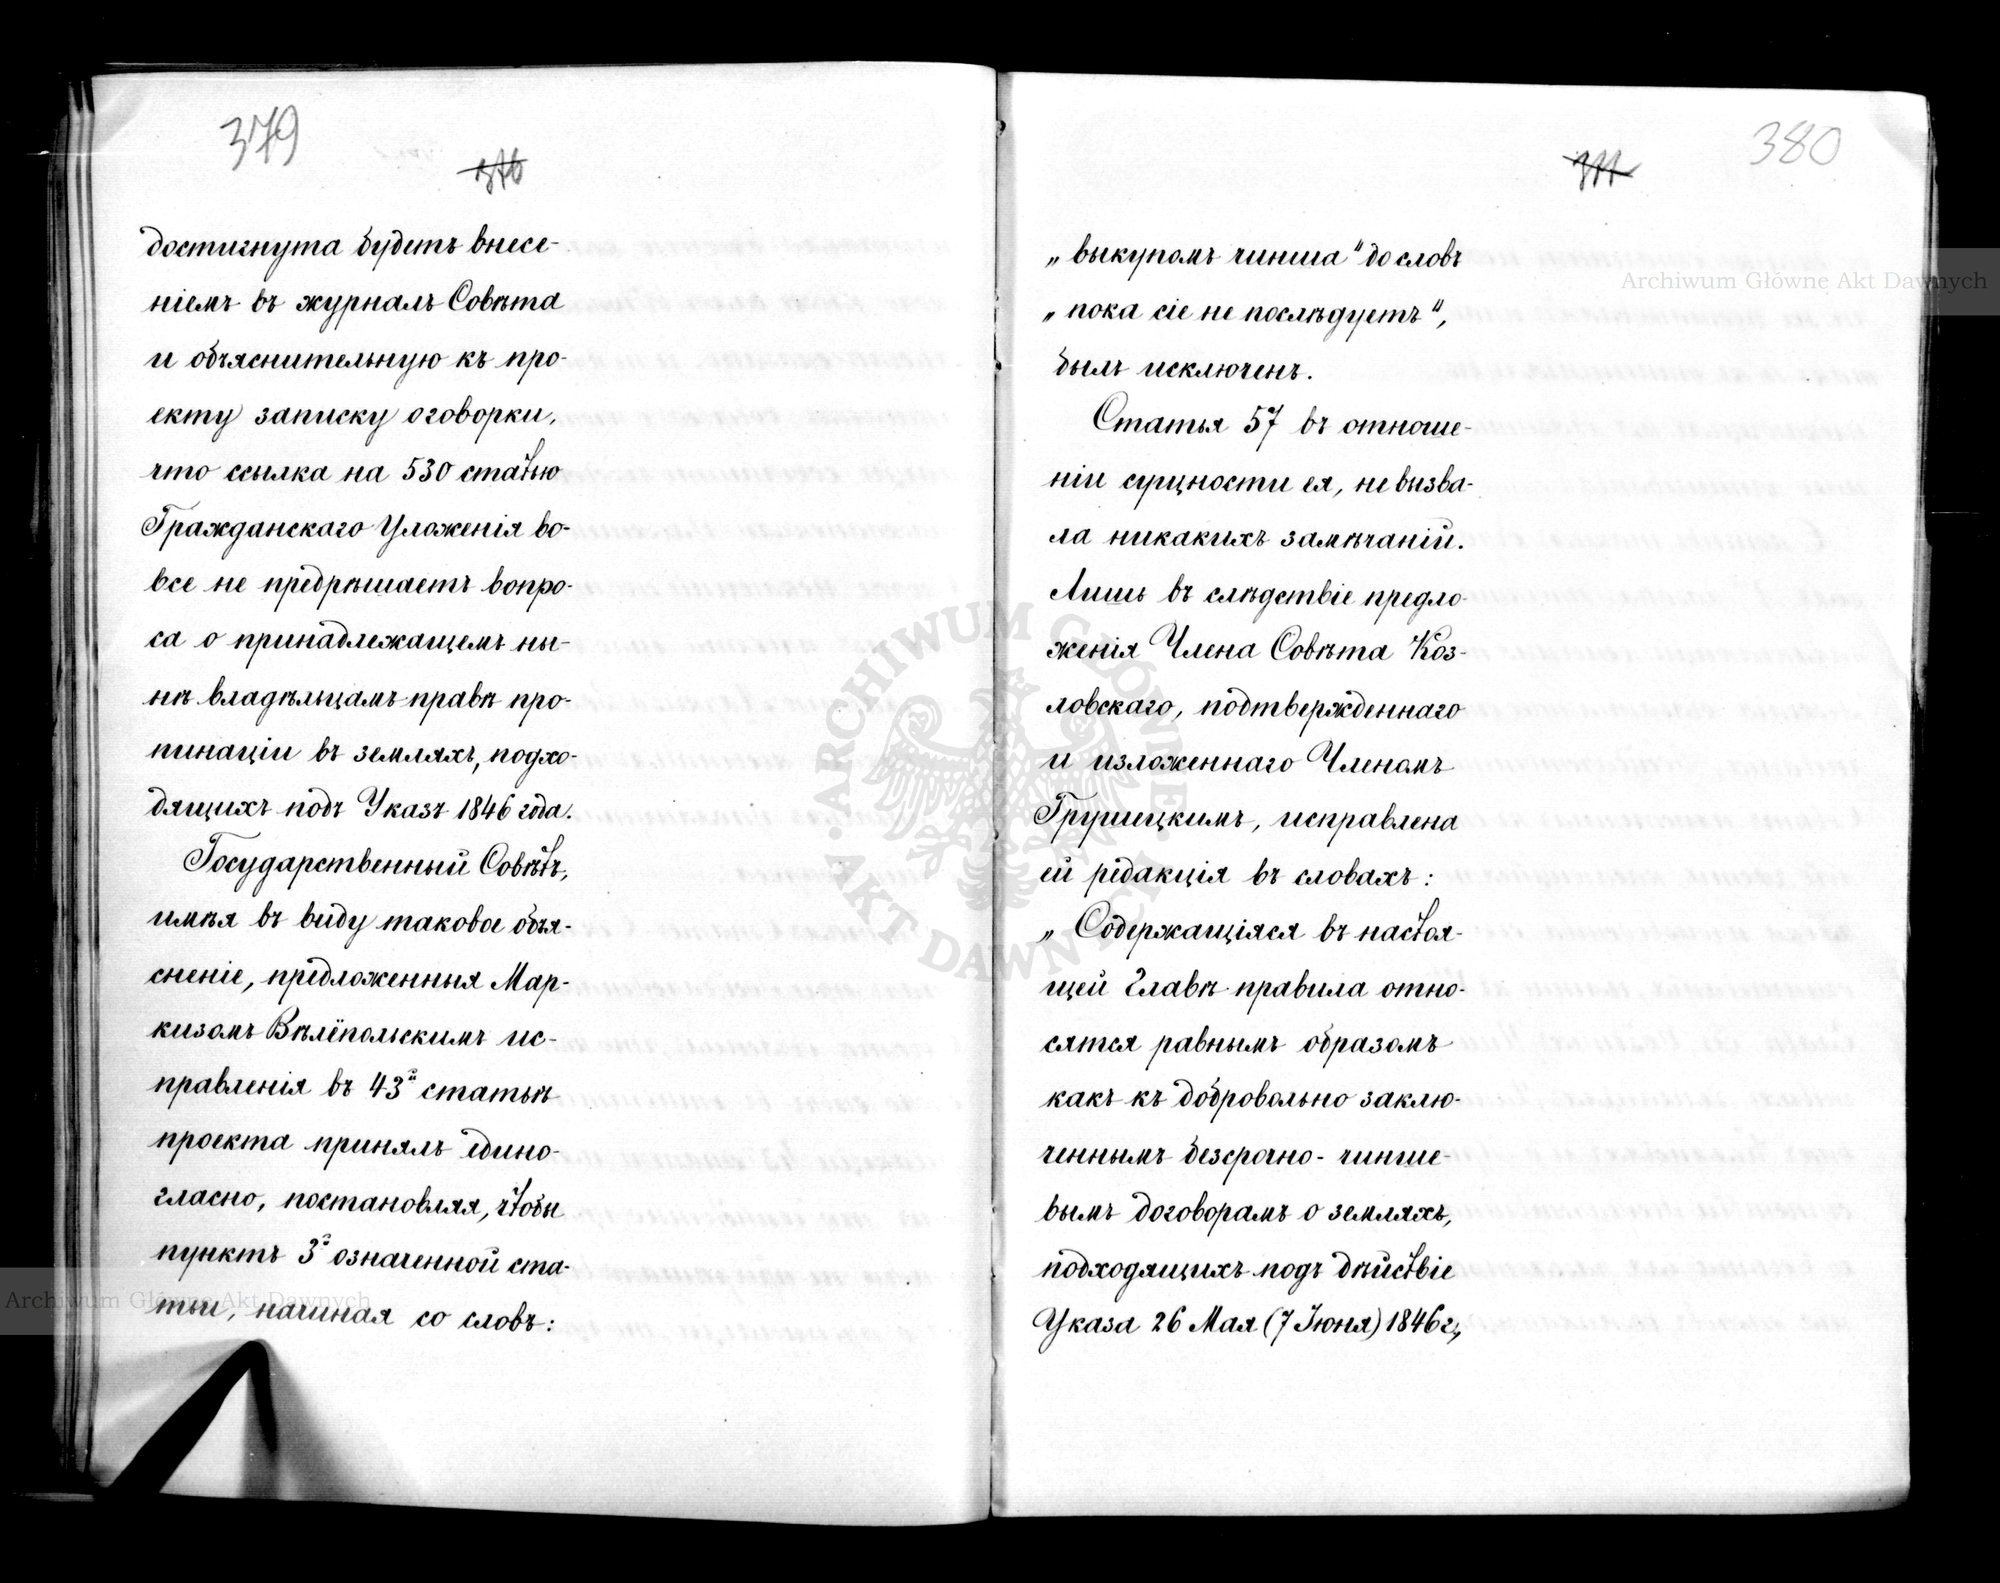 379
376
достигнута будетъ внесе-
ніемъ въ журналъ Совѣта
и объяснительную къ про-
екту записку оговорки,
что ссылка на 530 статью
Гражданскаго Уложенія во-
все не предрѣшаетъ вопро-
са о принадлежащемъ ны-
нѣ владѣльцамъ правѣ про-
пинаціи въ земляхъ, подхо-
дящихъ подъ Указъ 1846 года.
Государственный Совѣтъ,
имѣя въ виду таковое объя-
сненіе, предложенныя Мар-
кизомъ Вѣлёпольскимъ ис-
правленія въ 43й статьѣ
проекта принялъ едино-
гласно, постановляя, чтобы
пунктъ 3й означенной ста-
тьи, начиная со словъ:
380
377
„выкупомъ чинша" до словъ
„пока сіе не послѣдуетъ",
былъ исключенъ.
Статья 57 въ отноше-
ніи сущности ея, не вызва-
ла никакихъ замѣчаній.
Лишь въ слѣдствіе предло-
женія Члена Совѣта Коз-
ловскаго, подтвержденнаго
и изложеннаго Членомъ
Грушецкимъ, исправлена
ей редакція въ словахъ:
„Содержащіяся въ настоя-
щей Главѣ правила отно-
сятся равнымъ образомъ
какъ къ добровольно заклю-
ченнымъ безсрочно-чинше-
вымъ договорамъ о земляхъ,
подходящихъ подъ дѣйствіе
Указа 26 Мая (7 Іюня) 1846 г.,
Archiwum Główne Akt Dawnych
Archiwum Główne Akt Dawnych
ARCHIWUM GŁÓWNE AKT DAWNYCH